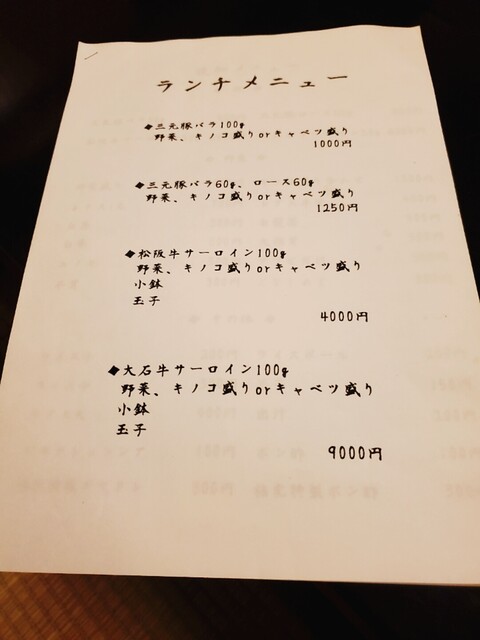 ランチメニュー
◆三元豚バラ100g
野菜、キノコ盛りorキャベツ盛り
1000円
◆三元豚バラ60g、ロース60g
野菜、キノコ盛りorキャベツ盛り
1250円
◆松阪牛サーロイン100g
野菜、キノコ盛りorキャベツ盛り
小鉢
玉子
4000円
◆大石牛サーロイン100g
野菜、キノコ盛りorキャベツ盛り
小鉢
玉子
9000円